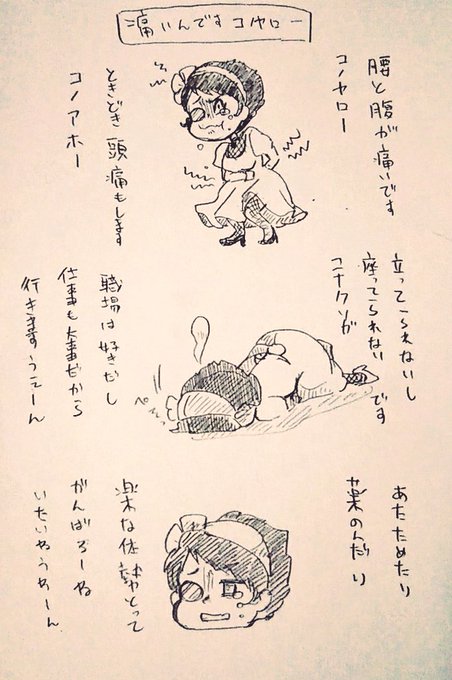 痛いんですコノヤロー
腰と腹が痛いです
コノヤロー
ときどき頭痛もします
コノアホー
立ってられないし
座ってられないです
コナクソが
職場は好きだし
仕事も大事だから
行きますうえーん
ぺしょ
あたためたり
薬のんだり
楽な体勢とって
がんばろーね
いたいやうわーん